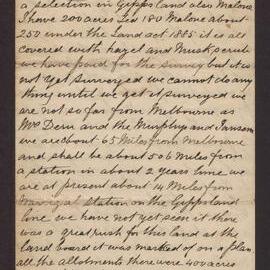 a selection in Gippsland also Malone
I have 200 acres Led 180 Malone about
250 under the Land act 1885 it is all
covered with hazel and Musk scrub
we have paid for the survey but it is
not yet surveyed we cannot do any
thing until we get it surveyed we
are not so far from Melbourne as
Mc Dern and the Murphy and
we are about 65 Miles from Melbourne
and shall be about 5 or 6 Miles from
a station in about 2 years time we
are at present about 14 Miles from
station on the Gippsland
line we have not yet seen it there
was a great rush for this land at the
land board it was marked of on a plan
all the allotments there were 400 acres